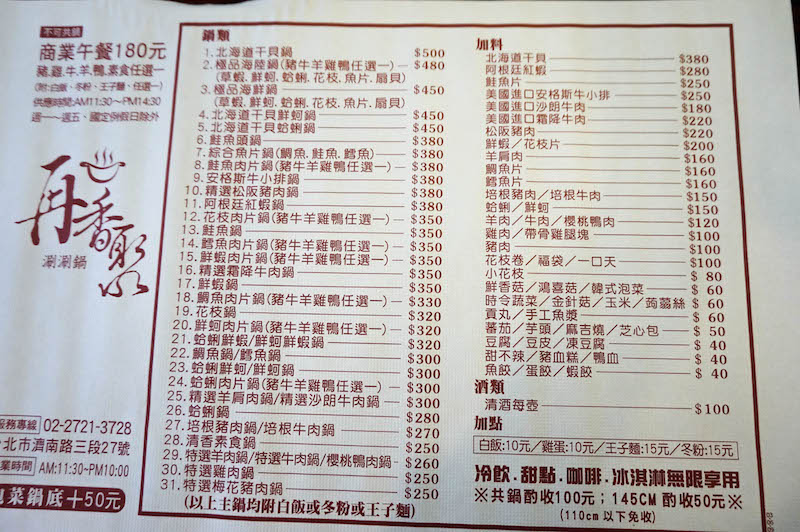 不可共鍋
商業午餐180元
豬.雞.牛.羊.鴨.素食任選一
(附:白飯、冬粉、王子麵、任選一)
供應時間:AM11:30~PM14:30
週一~週五、國定例假日除外
再香聚
涮涮鍋
服務專線 02-2721-3728
北市濟南路三段27號
業時間 AM:11:30~PM10:00
菜鍋底+50元
鍋類
1.北海道干貝鍋 $500
2.極品海陸鍋(豬牛羊雞鴨任選一) $480
(草蝦.鮮蚵.蛤蜊.花枝.魚片.扇貝)
3.極品海鮮鍋 $450
(草蝦.鮮蚵.蛤蜊.花枝.魚片.扇貝)
4.北海道干貝鮮蚵鍋 $450
5.北海道干貝蛤蜊鍋 $450
6.鮭魚頭鍋 $380
7.綜合魚片鍋(鯛魚.鮭魚.鱈魚) $380
8.鮭魚肉片鍋(豬牛羊雞鴨任選一) $380
9.安格斯牛小排鍋 $380
10.精選松阪豬肉鍋 $380
11.阿根廷紅蝦鍋 $380
12.花枝肉片鍋(豬牛羊雞鴨任選一) $350
13.鮭魚鍋 $350
14.鱈魚肉片鍋(豬牛羊雞鴨任選一) $350
15.鮮蝦肉片鍋(豬牛羊雞鴨任選一) $350
16.精選霜降牛肉鍋 $350
17.鮮蝦鍋 $350
18.鯛魚肉片鍋(豬牛羊雞鴨任選一) $330
19.花枝鍋 $320
20.鮮蚵肉片鍋(豬牛羊雞鴨任選一) $320
21.蛤蜊鮮蝦/鮮蚵鮮蝦鍋 $320
22.鯛魚鍋/鱈魚鍋 $300
23.蛤蜊鮮蚵/鮮蚵鍋 $300
24.蛤蜊肉片鍋(豬牛羊雞鴨任選一) $300
25.精選羊肩肉鍋/精選沙朗牛肉鍋 $300
26.蛤蜊鍋 $280
27.培根豬肉鍋/培根牛肉鍋 $270
28.清香素食鍋 $250
29.特選羊肉鍋/特選牛肉鍋/櫻桃鴨肉鍋 $260
30.特選雞肉鍋 $250
31.特選梅花豬肉鍋 $250
(以上主鍋均附白飯或冬粉或王子麵)
加料
北海道干貝 $380
阿根廷紅蝦 $280
鮭魚片 $250
美國進口安格斯牛小排 $250
美國進口沙朗牛肉 $180
美國進口霜降牛肉 $220
松阪豬肉 $220
鮮蝦/花枝片 $200
羊肩肉 $160
鯛魚片 $160
鱈魚片 $160
培根豬肉/培根牛肉 $150
蛤蜊/鮮蚵 $150
羊肉/牛肉/櫻桃鴨肉 $120
雞肉/帶骨雞腿塊 $100
豬肉 $100
花枝卷/福袋/一口天 $100
小花枝 $ 80
鮮香菇/鴻喜菇/韓式泡菜 $ 60
時令蔬菜/金針菇/玉米/蒟蒻絲 $ 60
貢丸/手工魚漿 $ 60
蕃茄/芋頭/麻吉燒/芝心包 $ 50
豆腐/豆皮/凍豆腐 $ 40
甜不辣/豬血糕/鴨血 $ 40
魚餃/蛋餃/蝦餃 $ 40
酒類
清酒每壺 $100
加點
白飯:10元/雞蛋:10元/王子麵:15元/冬粉:15元
冷飲.甜點.咖啡.冰淇淋無限享用
※共鍋酌收100元;145CM 酌收50元※
(110cm 以下免收)